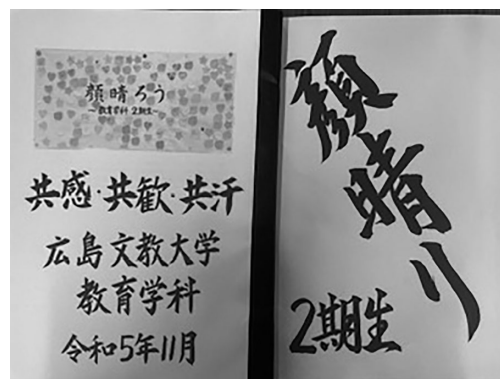 顔晴ろう
～教育学科 2期生～
共感・共歓・共汗
広島文教大学
教育学科
令和5年11月
顔晴り
2期生